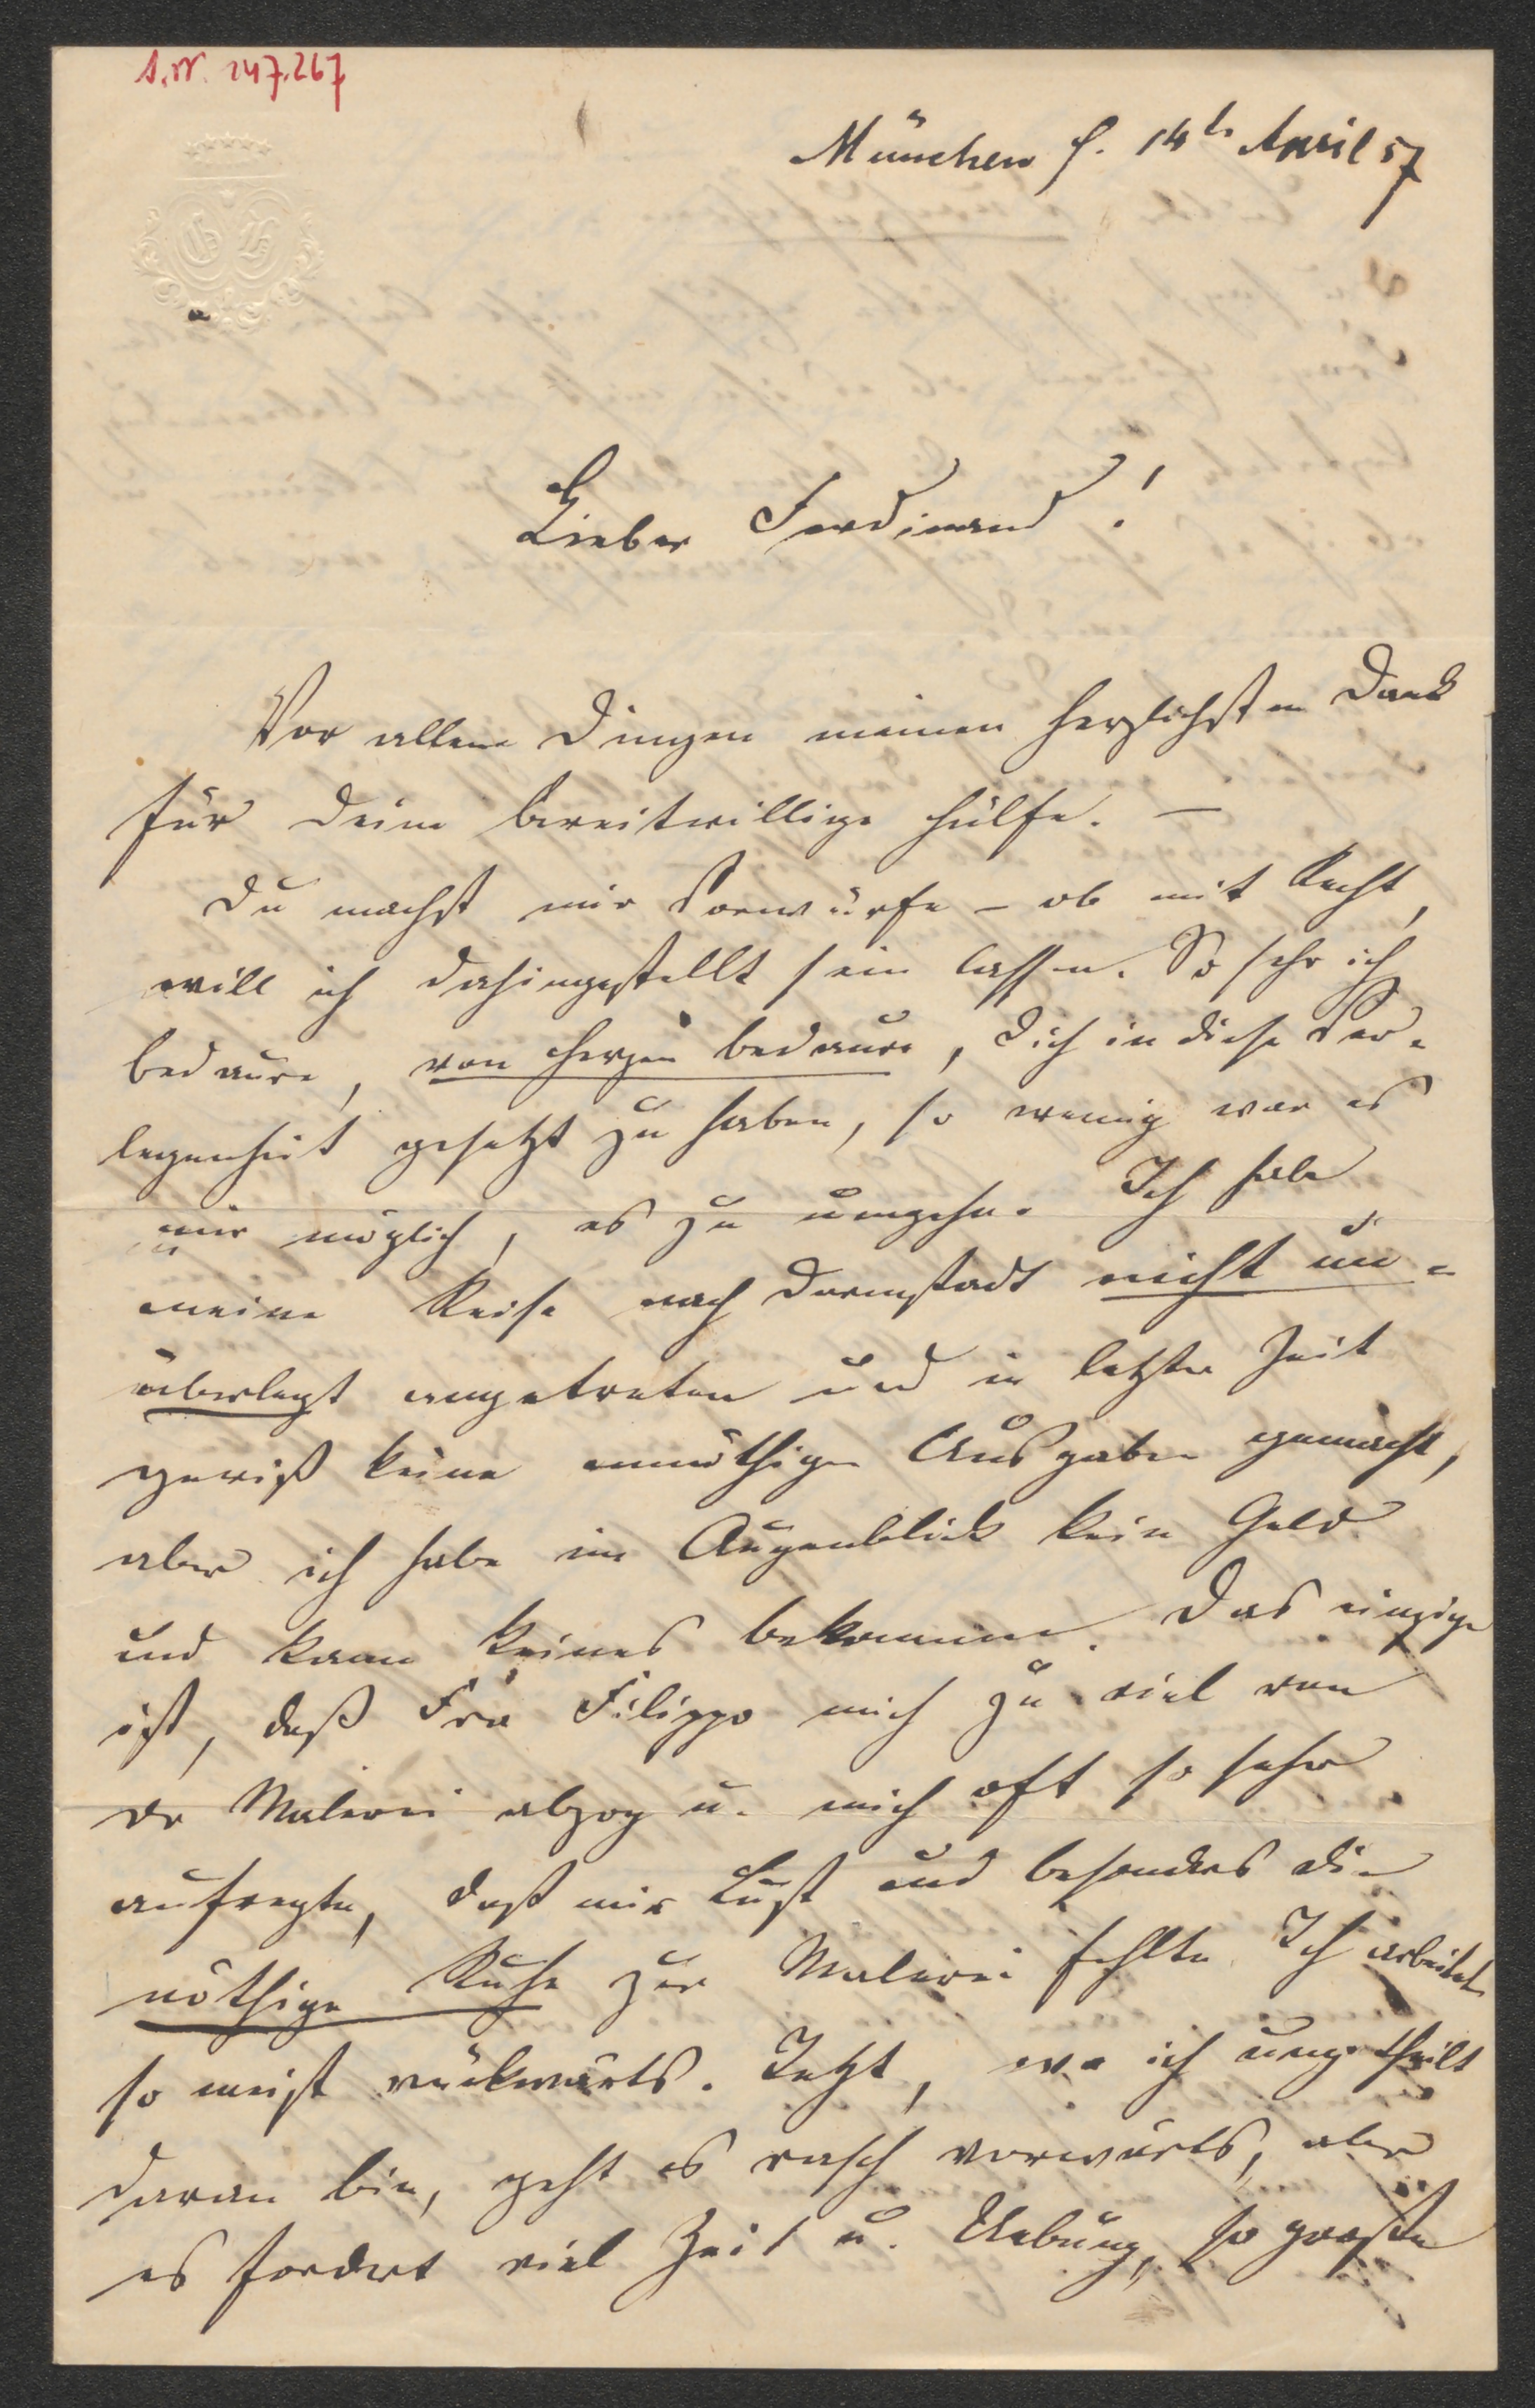 I.N. 247.267
München d. 14t April 57
Lieber Ferdinand!
Vor allem Dingen meinen herzlichsten Dank
für Deine bereitwillige Hülfe. —
Du machst mir Vorwürfe – ob mit Recht,
will ich dahingestellt sein lassen. So sehr ich
bedaure, von Herzen bedaure, Dich in diese Ver-
legenheit gesetzt zu haben, so wenig war es
mir möglich, es zu umgehn. Ich habe
meine Reise nach Darmstadt nicht un-
überlegt angetreten und in letzter Zeit
gewiß keine unnöthigen Ausgaben gemacht,
aber ich habe im Augenblick kein Geld
und kann keines bekommen. Das einzige
ist, daß Fra Filippo mich zu viel von
der Malerei abzog u. mich oft so sehr
aufregte, daß mir Lust und besonders die
nöthige Ruhe zur Malerei fehlte. Ich arbeitete
so meist rückwärts. Jetzt, wo ich ungetheilt
daran bin, geht es rasch vorwärts, aber
es fordert viel Zeit u. Uebung, so große